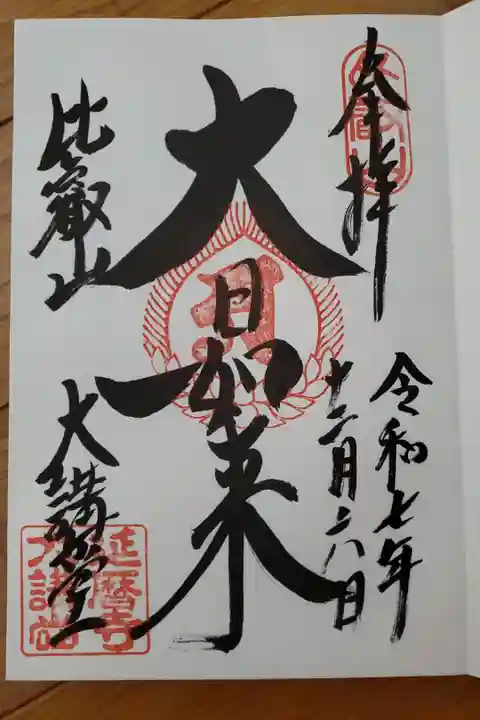 奉拝
令和七年
十二月二八日
大日如来
比叡山
大講堂
延暦寺
大講堂